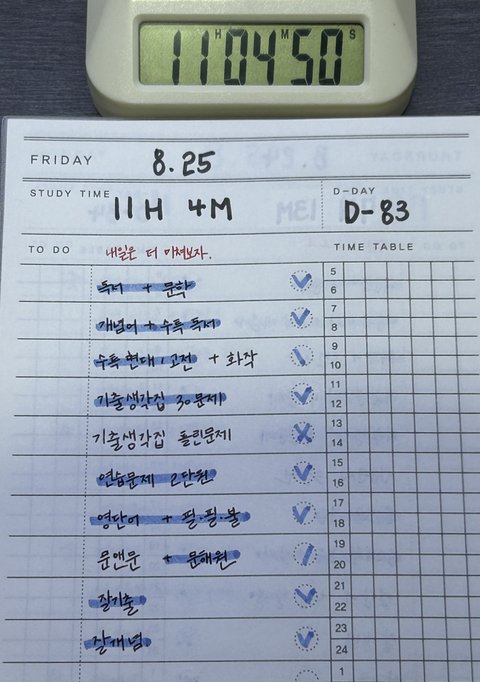 H M S
11 04 50
FRIDAY 8.25
STUDY TIME 11H 4M
D-DAY D-83
TO DO 내일은 더 미쳐보자.
TIME TABLE
독서 + 문학
개념어 + 수특 독서
수특 현대, 고전 + 화작
기출생각집 30문제
기출생각집 틀린문제
연습문제 2단원
영단어 + 필.필.볼
문앤문 + 문해원
잘기출
잘개념
5
6
7
8
9
10
11
12
13
14
15
16
17
18
19
20
21
22
23
24
1